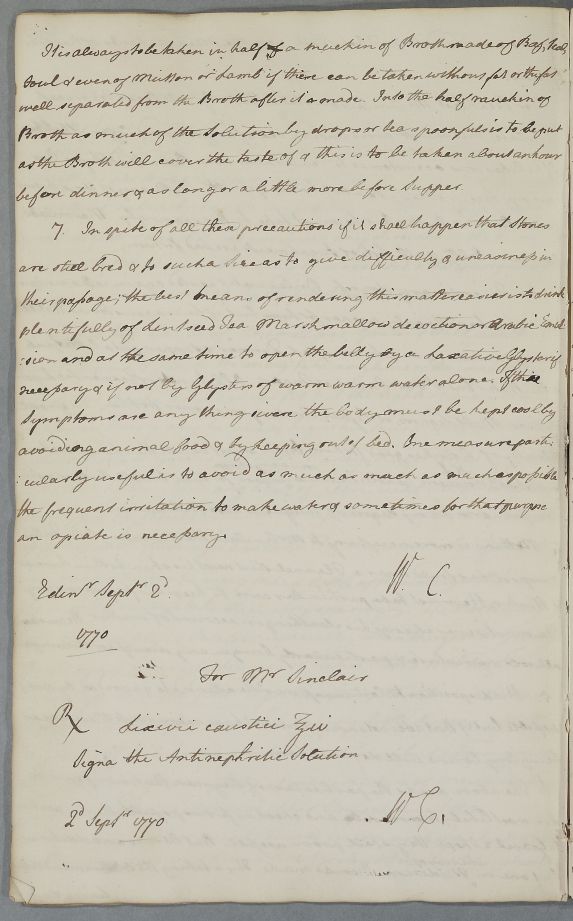 It is always to be taken in half of a muchkin of Broth made of Beef, Veal,
fowl & even of Mutton or Lamb if these can be taken without fat or this fat
well separated from the Broth after it is made. Into the half muchkin of
Broth as much of the Solution by drops or tea spoonfuls is to be put
as the Broth will cover the taste of & this is to be taken about an hour
before dinner & as long or a little more before Supper.
7. In spite of all these precautions if it shall happen that Stones
are still bred & to such a Size as to give difficulty & uneasiness in
their passage; the best means of rendering this matter easier is to drink
plentifully of Lintseed Tea Marshmallow decoction or Arabic Emul
:sion and at the same time to open the belly by a Laxative Glyster if
necessary & if not by Glysters of warm warm water alone. If the
Symptoms are any thing severe the body must be kept cool by
avoiding animal food & by keeping out of bed. One measure parti:
:cularly useful is to avoid as much as much as much as possible
the frequent irritation to make water & sometimes for that purpose
an opiate is necessary.
W. C.
Edinr. Septr. 2d.
1770
For Mr Sinclair
℞ Lixivii caustici ℥iv
Signa the Antinephritic Solution
W C.
2d Septr 1770